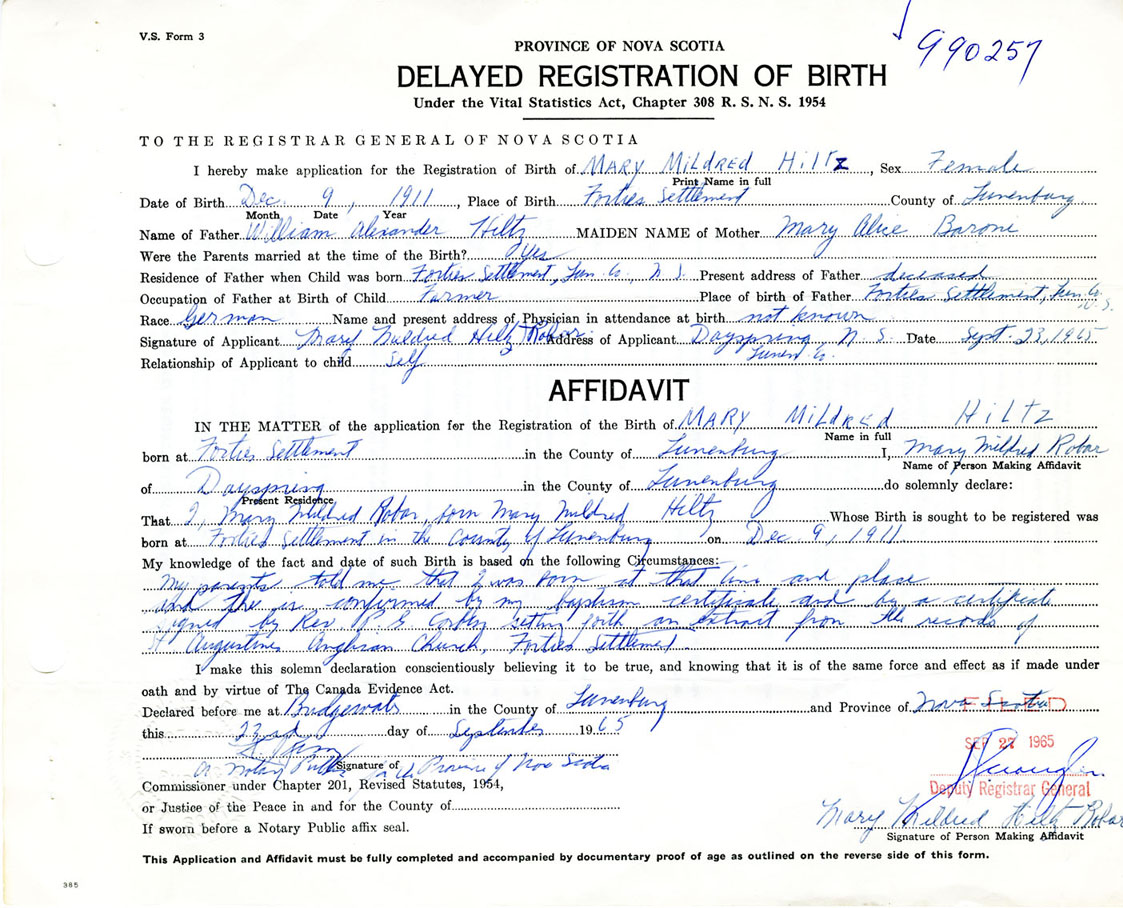 V.S. Form 3
990257
PROVINCE OF NOVA SCOTIA
DELAYED REGISTRATION OF BIRTH
Under the Vital Statistics Act, Chapter 308 R. S. N. S. 1954
TO THE REGISTRAR GENERAL OF NOVA SCOTIA
I hereby make application for the Registration of Birth of MARY MILDRED HILTZ, Sex Female
Print Name in full
Date of Birth Dec. 9, 1911, Place of Birth Forties Settlement County of Lunenburg
Month Date Year
Name of Father William Alexander Hiltz MAIDEN NAME of Mother Mary Alice Baroni
Were the Parents married at the time of the Birth? yes
Residence of Father when Child was born Forties Settlement, Lun. Co., N S. Present address of Father deceased
Occupation of Father at Birth of Child Farmer Place of birth of Father Forties Settlement, Lun. Co. N.S.
Race German Name and present address of Physician in attendance at birth not known
Signature of Applicant Mary Mildred Hiltz Robar Address of Applicant Dayspring, N. S. Date Sept. 23, 1965
Lunen. Co.
Relationship of Applicant to child Self
AFFIDAVIT
IN THE MATTER of the application for the Registration of the Birth of MARY MILDRED HILTZ
Name in full
born at Forties Settlement in the County of Lunenburg I, Mary Mildred Robar
Name of Person Making Affidavit
of Dayspring in the County of Lunenburg do solemnly declare:
Present Residence
That I, Mary Mildred Robar, born Mary Mildred Hiltz Whose Birth is sought to be registered was
born at Forties Settlement in the County of Lunenburg on Dec. 9, 1911
My knowledge of the fact and date of such Birth is based on the following Circumstances:
My parents told me that I was born at that time and place
and this is confirmed by my baptism certificate and by a certificate
signed by Rev. R. G. setting forth an extract from the records of
St Augustines Anglican Church, Forties Settlement.
I make this solemn declaration conscientiously believing it to be true, and knowing that it is of the same force and effect as if made under
oath and by virtue of The Canada Evidence Act.
Declared before me at Bridgewater in the County of Lunenburg and Province of Nova Scotia
FILED
this 23rd day of September 1965
SEP 27 1965
A Notary Public in & Province of Nova Scotia
Signature of
Deputy Registrar General
Commissioner under Chapter 201, Revised Statutes, 1954,
or Justice of the Peace in and for the County of
Mary Mildred Hiltz Robar
Signature of Person Making Affidavit
If sworn before a Notary Public affix seal.
This Application and Affidavit must be fully completed and accompanied by documentary proof of age as outlined on the reverse side of this form.
385